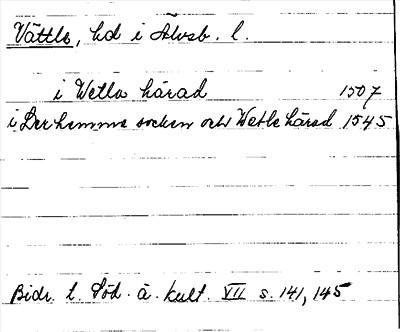 Vättle, hd i Älvsb. l.
i Wetla härad 1507
i Lerhemma socken och Wetle härad 1545
Bidr. t. Söd. ä. kult. VII s. 141, 145